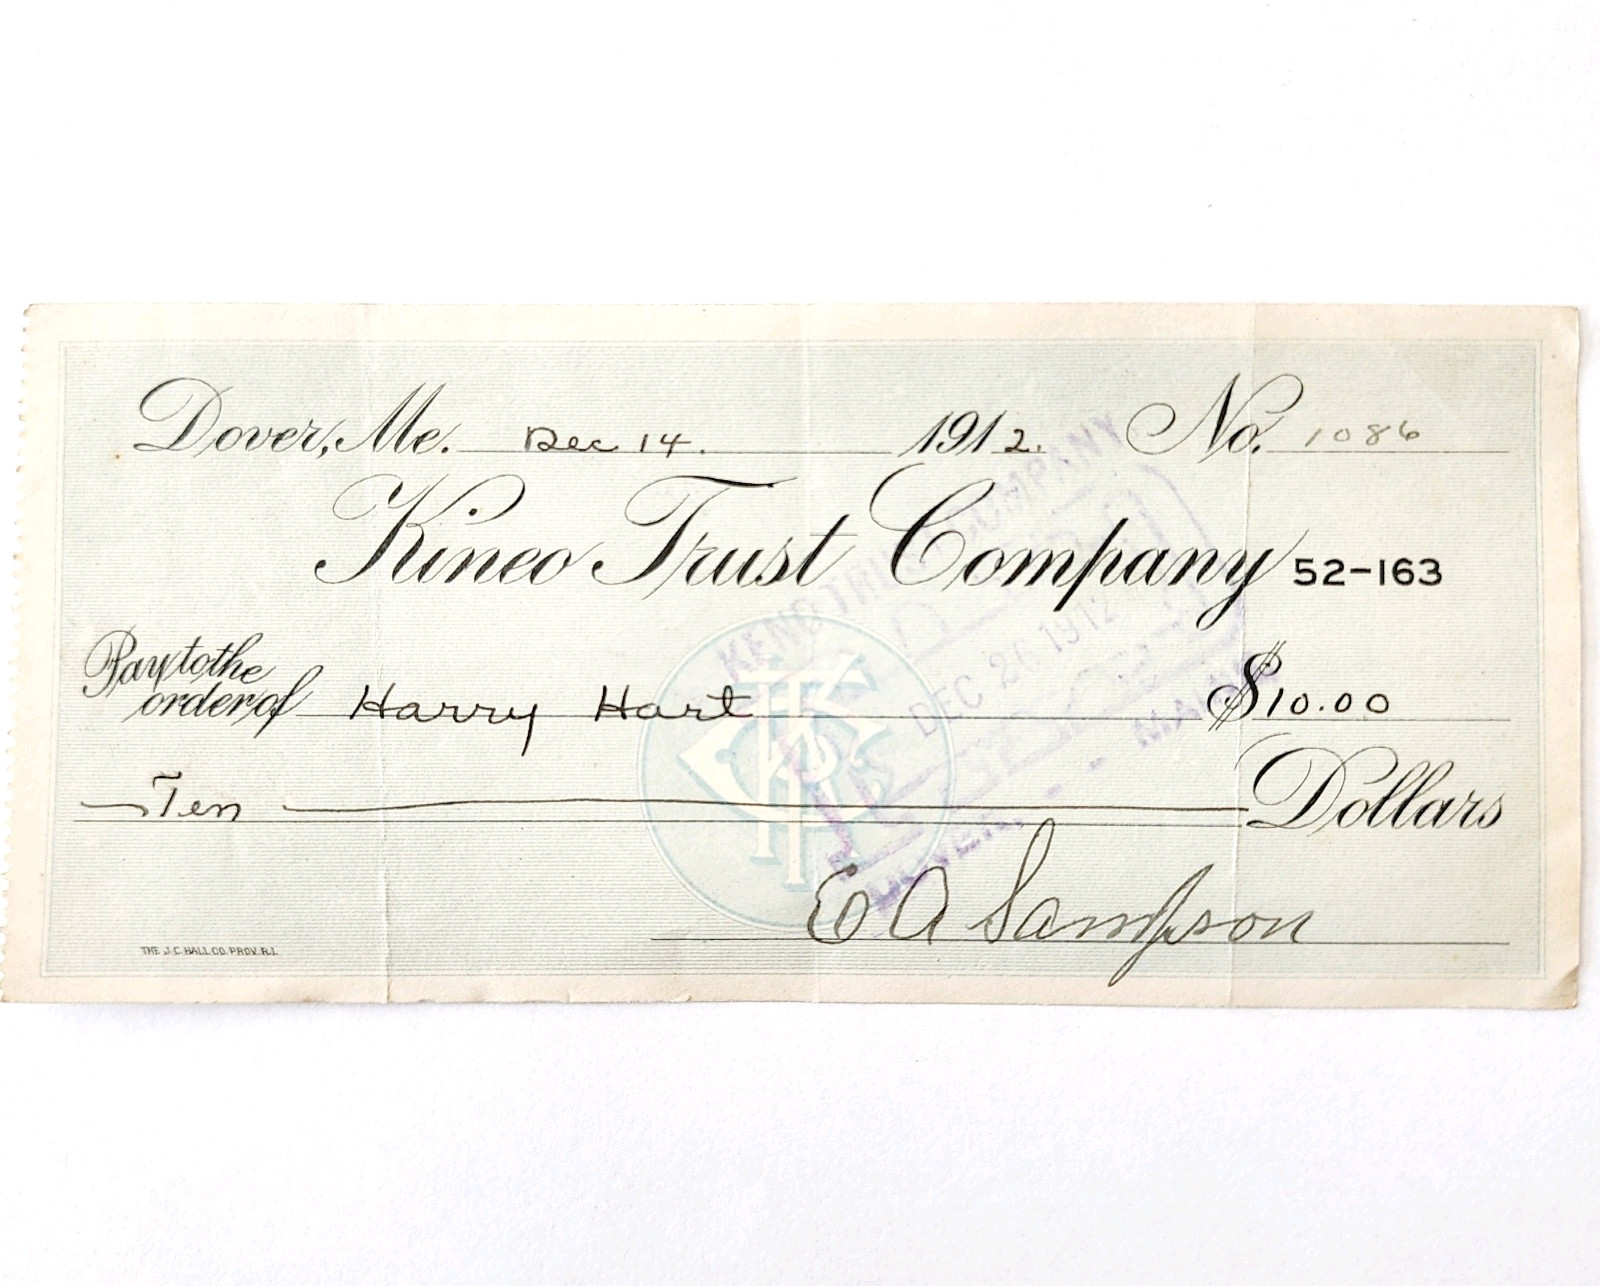 Dover, Me. Dec 14. 1912. No. 1086
Kineo Trust Company 52-163
Pay to the
order of Harry Hart $10.00
Ten Dollars
E A Sampson
THE J.C. HALL CO. PROV. R.I.
TRUST COMPANY
DEC 26 1912
MAINE